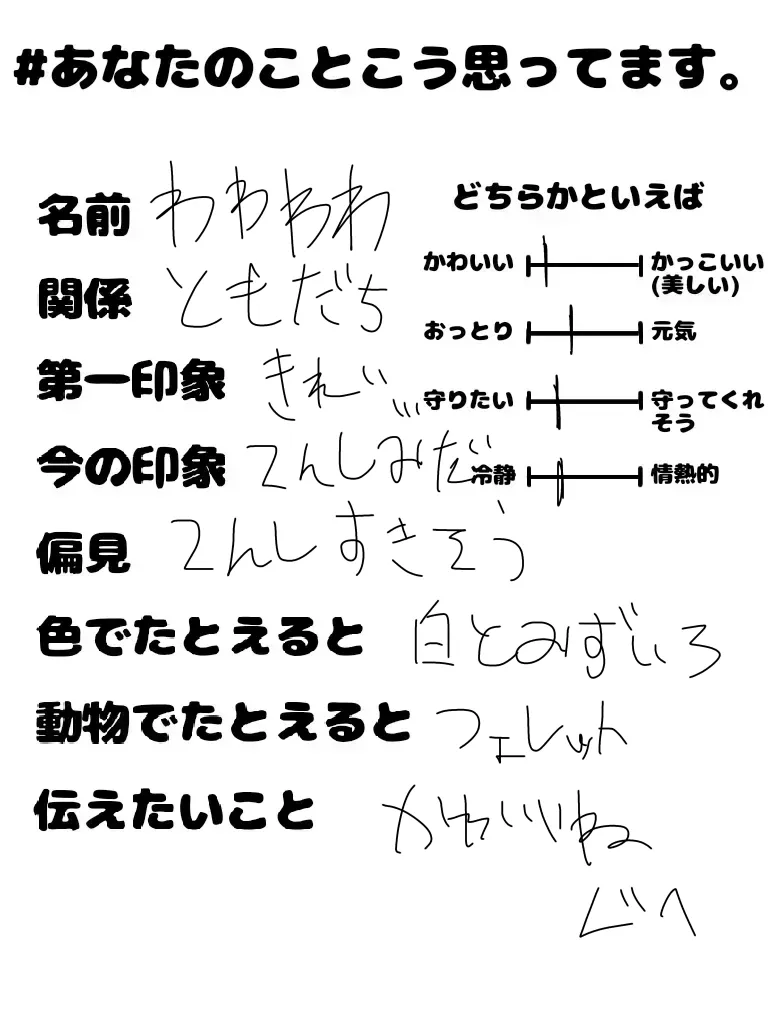 #あなたのことこう思ってます。
名前 わわわわ
関係 ともだち
第一印象 きれい
今の印象 てんしみだ
偏見 てんしすきそう
どちらかといえば
かわいい かっこいい
(美しい)
おっとり 元気
守りたい 守ってくれ
そう
冷静 情熱的
色でたとえると 白とみずいろ
動物でたとえると フェレット
伝えたいこと かわいいね
ぐへ